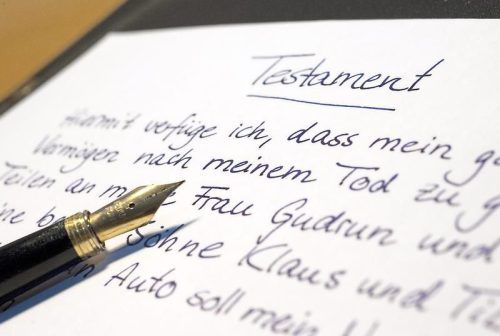 Testament
Hiermit verfüge ich, dass mein g
Vermögen nach meinem Tod zu g
Teilen an m e Frau Gudrun und
ine b Söhne Klaus und Ti
n Auto soll mein